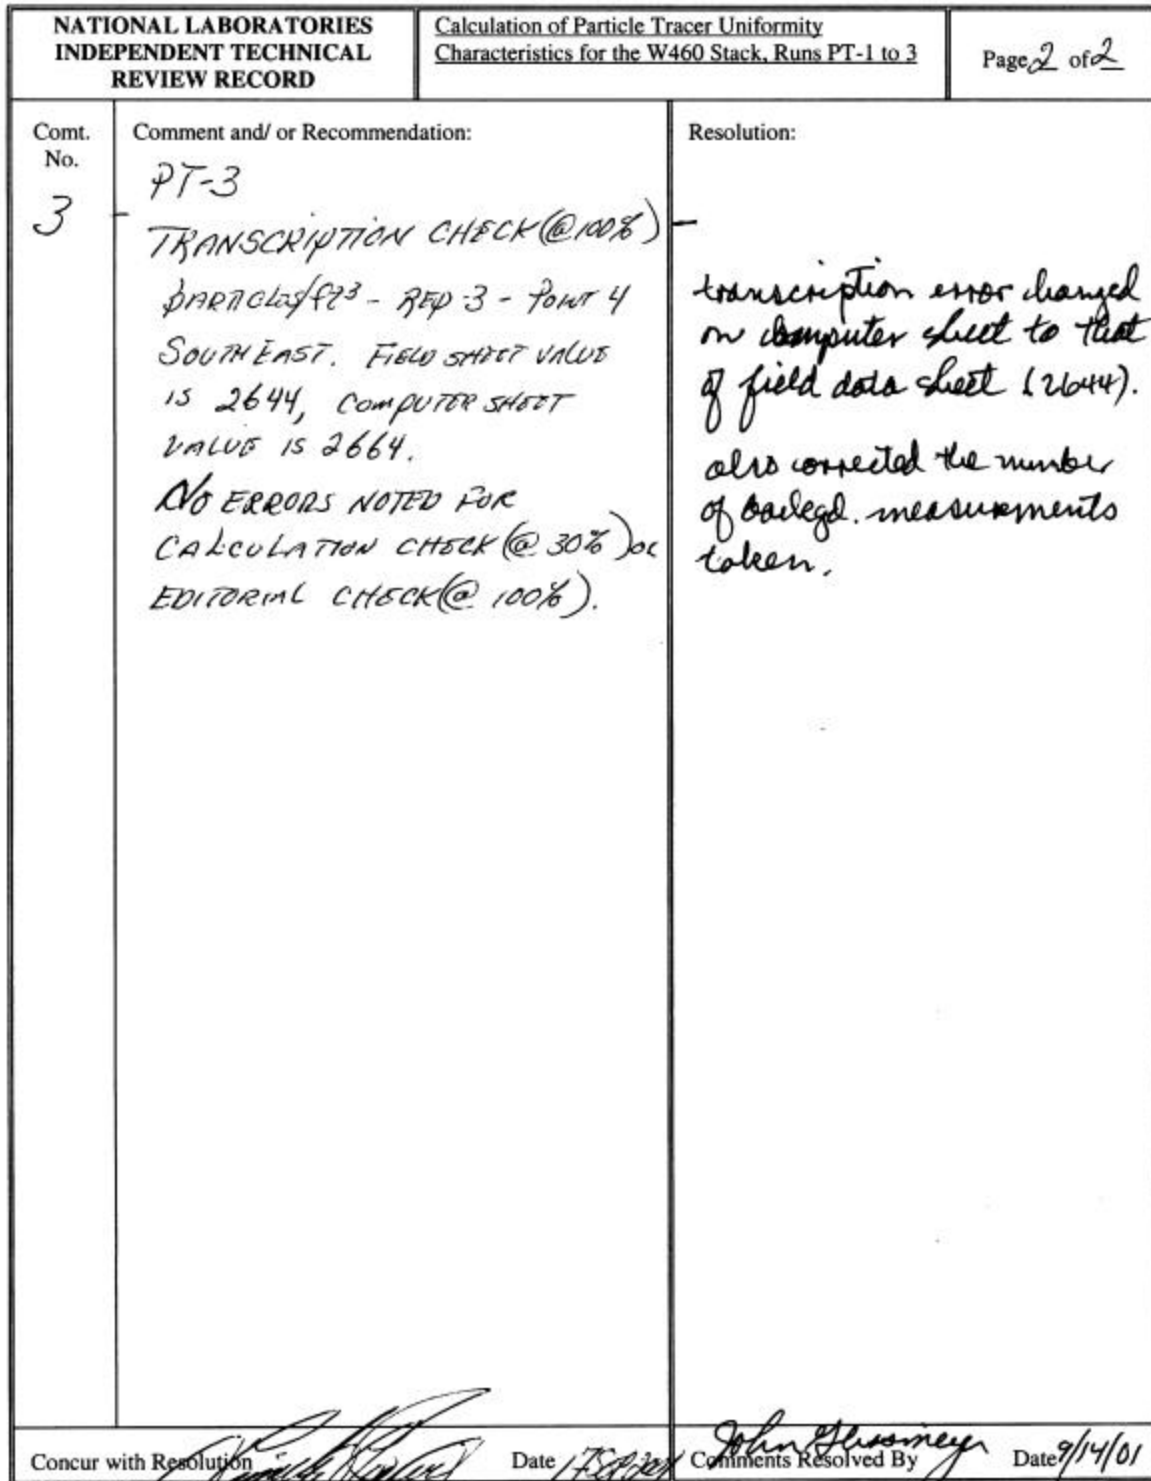 NATIONAL LABORATORIES
INDEPENDENT TECHNICAL
REVIEW RECORD
Calculation of Particle Tracer Uniformity
Characteristics for the W460 Stack, Runs PT-1 to 3
Page 2 of 2
Comt.
No.
Comment and/ or Recommendation:
3
- PT-3
TRANSCRIPTION CHECK (@ 100%)
PARTICLES/ft3 - REP-3 - POINT 4
SOUTHEAST. FIELD SHEET VALUE
IS 2644, COMPUTER SHEET
VALUE IS 2664.
NO ERRORS NOTED FOR
CALCULATION CHECK (@ 30%) OR
EDITORIAL CHECK (@ 100%).
Resolution:
-
transcription error changed
on computer sheet to that
of field data sheet (2644).
also corrected the number
of backgd. measurements
taken.
Concur with Resolution
Date
John
Comments Resolved By
Date 9/14/01